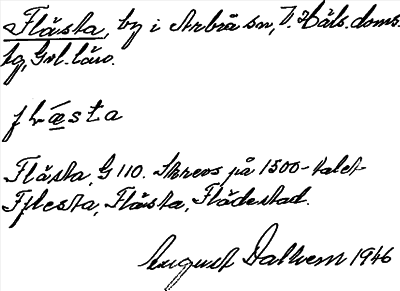 Flästa, by i Arbrå sn, V. Häls. doms.
tg, Gvl. län.
flæ̀sta
Flästa, G 110. Skrevs på 1500-talet
Fflesta, Flästa, Flädestad.
August Dalhem 1946